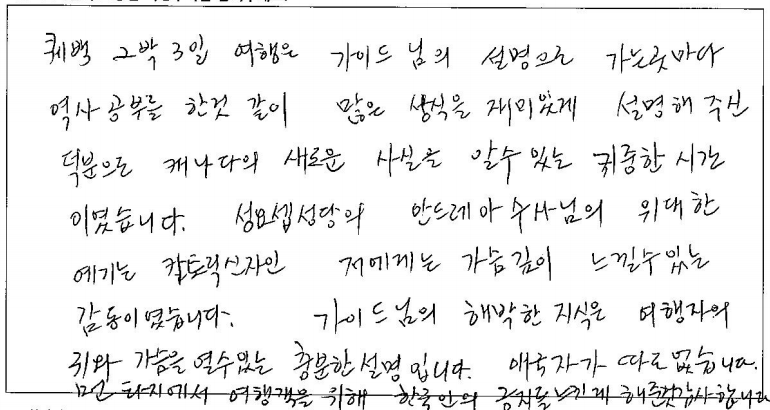 퀘백 2박 3일 여행은 가이드 님의 설명으로 가는곳마다
역사공부를 한것 같이 많은 상식을 재미있게 설명해 주신
덕분으로 캐나다의 새로운 사실을 알수있는 귀중한 시간
이였습니다. 성요셉성당의 안드레아수사님의 위대한
얘기는 칼토릭신자인 저에게는 가슴깊이 느낄수있는
감동이였습니다. 가이드님의 해박한 지식은 여행자의
귀와 가슴을 열수있는 충분한설명입니다. 애국자가 따로 없습니다.
먼 타지에서 여행객을 위해 한국인의 긍지를 느끼게 해준것감사합니다